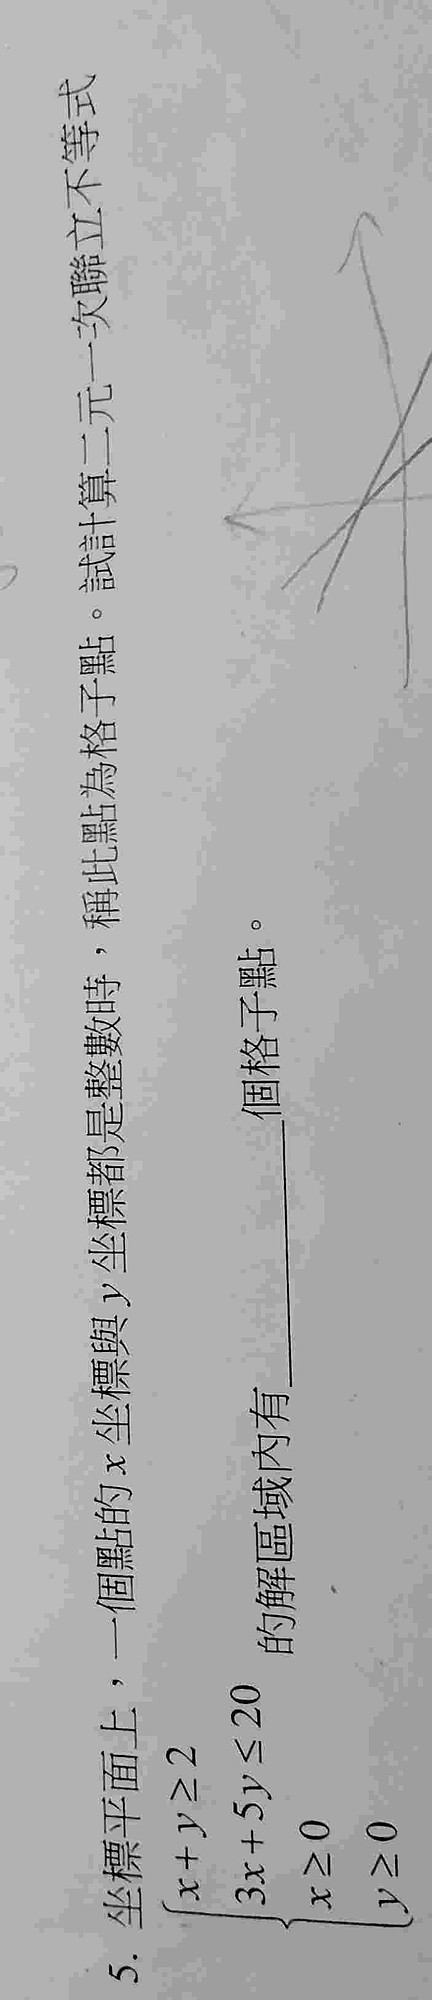 5. 坐標平面上，一個點的 x 坐標與 y 坐標都是整數時，稱此點為格子點。試計算二元一次聯立不等式
x + y ≥ 2
3x + 5y ≤ 20
x ≥ 0
y ≥ 0
的解區域內有__________個格子點。